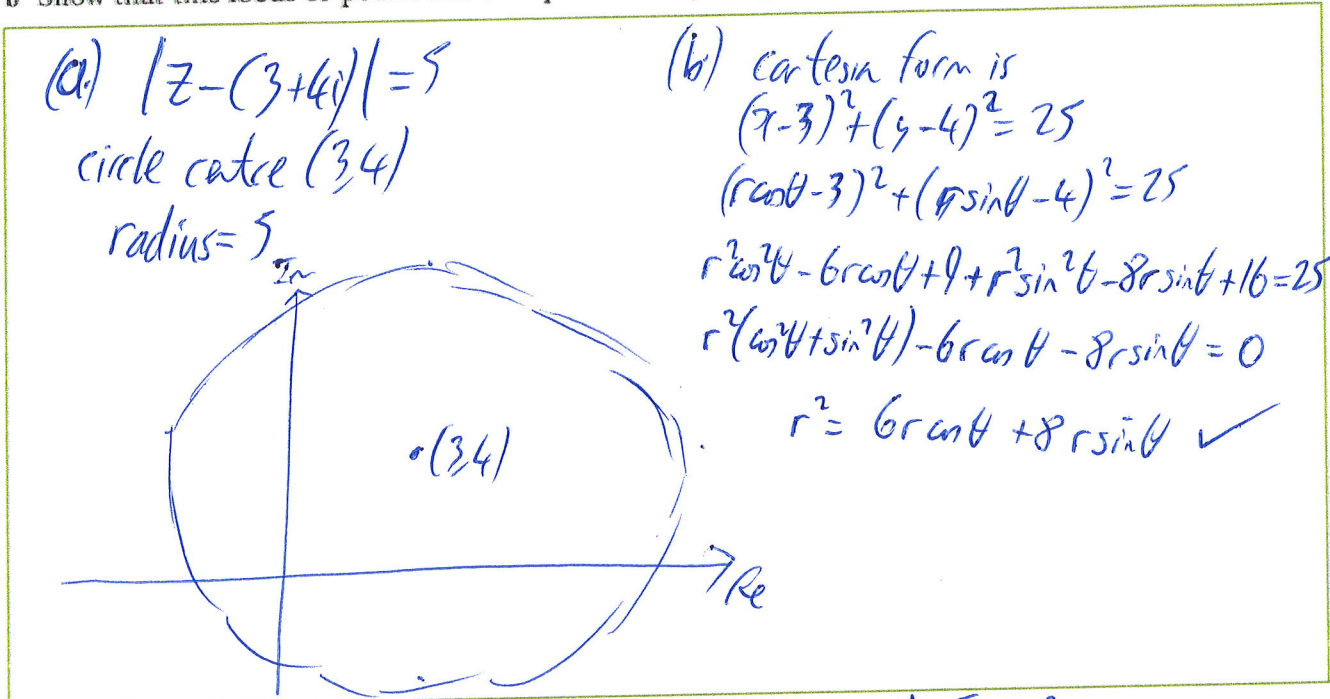 b Show that this locus of
(a) |z-(3+4i)|=5
circle centre (3,4)
radius=5
Im
•(3,4)
Re
(b) cartesin form is
(x-3)²+(y-4)²=25
(rcosθ-3)²+(rsinθ-4)²=25
r²cos²θ-6rcosθ+9+r²sin²θ-8rsinθ+16=25
r²(cos²θ+sin²θ)-6rcosθ-8rsinθ=0
r²=6rcosθ+8rsinθ ✓